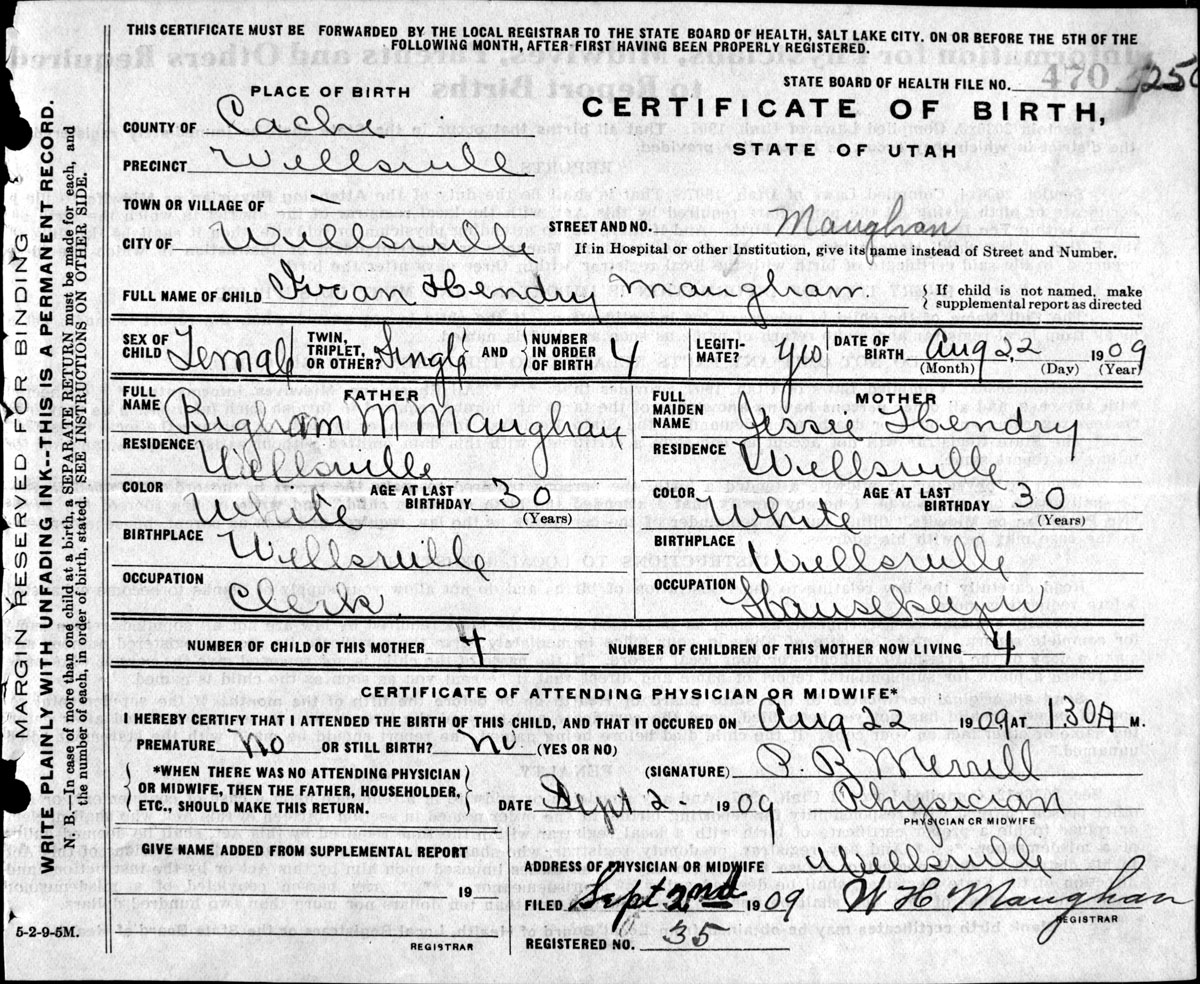 THIS CERTIFICATE MUST BE FORWARDED BY THE LOCAL REGISTRAR TO THE STATE BOARD OF HEALTH, SALT LAKE CITY. ON OR BEFORE THE 5TH OF THE
FOLLOWING MONTH, AFTER FIRST HAVING BEEN PROPERLY REGISTERED.
STATE BOARD OF HEALTH FILE NO. 470
PLACE OF BIRTH
CERTIFICATE OF BIRTH,
STATE OF UTAH
COUNTY OF Cache
PRECINCT Wellsville
TOWN OR VILLAGE OF
CITY OF Wellsville STREET AND NO. Maughan
If in Hospital or other Institution, give its name instead of Street and Number.
FULL NAME OF CHILD Hendry Maugham. { If child is not named, make
supplemental report as directed
SEX OF CHILD Female TWIN, TRIPLET, OR OTHER? Single AND NUMBER IN ORDER OF BIRTH 4 LEGITI-MATE? yes DATE OF BIRTH Aug 22 1909
(Month) (Day) (Year)
FATHER
FULL NAME M Maughan
RESIDENCE Wellsville
COLOR White AGE AT LAST BIRTHDAY 30
(Years)
BIRTHPLACE Wellsville
OCCUPATION Clerk
MOTHER
FULL MAIDEN NAME Jessie Hendry
RESIDENCE Wellsville
COLOR White AGE AT LAST BIRTHDAY 30
(Years)
BIRTHPLACE Wellsville
OCCUPATION Housekeeper
NUMBER OF CHILD OF THIS MOTHER 4 NUMBER OF CHILDREN OF THIS MOTHER NOW LIVING 4
CERTIFICATE OF ATTENDING PHYSICIAN OR MIDWIFE*
I HEREBY CERTIFY THAT I ATTENDED THE BIRTH OF THIS CHILD, AND THAT IT OCCURED ON Aug 22 1909 AT 130A M.
PREMATURE No OR STILL BIRTH? No. (YES OR NO)
{ *WHEN THERE WAS NO ATTENDING PHYSICIAN
OR MIDWIFE, THEN THE FATHER, HOUSEHOLDER,
ETC., SHOULD MAKE THIS RETURN. }
(SIGNATURE) P. B Merrill
DATE Sept 2- 1909 Physician
PHYSICIAN OR MIDWIFE
GIVE NAME ADDED FROM SUPPLEMENTAL REPORT
19
REGISTRAR
ADDRESS OF PHYSICIAN OR MIDWIFE Wellsville
FILED Sept 2nd 1909 W H Maughan
REGISTRAR
REGISTERED NO. 35
5-2-9-5M.
MARGIN RESERVED FOR BINDING
WRITE PLAINLY WITH UNFADING INK--THIS IS A PERMANENT RECORD.
N. B.—In case of more than one child at a birth, a SEPARATE RETURN must be made for each, and
the number of each, in order of birth, stated. SEE INSTRUCTIONS ON OTHER SIDE.